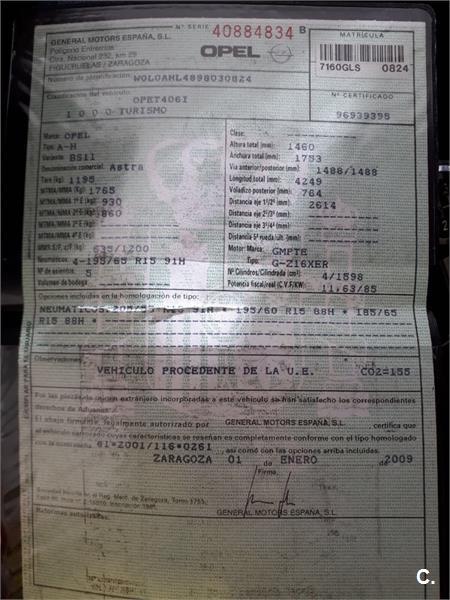 Nº SERIE 40884834 B
GENERAL MOTORS ESPAÑA, S.L.
Polígono Entrerríos
Ctra. Nacional 232, km 29
FIGUERUELAS / ZARAGOZA
OPEL
MATRICULA
7160GLS 0824
Número de identificación: W0L0AHL4898030824
Clasificación del vehículo: OPET406I
1000 TURISMO
Nº CERTIFICADO
96939395
Marca: OPEL
Tipo: A-H
Variante: BS11
Denominación comercial: Astra
Tara (kg): 1195
MTMA/MMA (kg): 1765
MTMA/MMA 1ºE (kg): 930
MTMA/MMA 2ºE (kg): 860
MTMA/MMA 3ºE (kg):
MTMA/MMA 4ºE (kg):
MMR S/F, c/F (kg): 635/1200
Neumáticos: 4-195/65 R15 91H
Nº de asientos: 5
Volumen de bodega:
Clase:
Altura total (mm): 1460
Anchura total (mm): 1753
Vía anterior/posterior (mm): 1488/1488
Longitud total (mm): 4249
Voladizo posterior (mm): 764
Distancia eje 1º/2º (mm): 2614
Distancia eje 2º/3º (mm):
Distancia eje 3º/4º (mm):
Distancia 5ª rueda/ult. (mm):
Motor: Marca: GMPTE
Tipo: G-Z16XER
Nº Cilindros/Cilindrada (cm³): 4/1598
Potencia fiscal/real (C.V.F/KW): 11,63/85
Opciones incluidas en la homologación de tipo:
NEUMATICOS 205/55 R16 91H * 195/60 R15 88H * 185/65
R15 88H *
Observaciones:
VEHICULO PROCEDENTE DE LA U.E. CO2=155
Por las piezas de origen extranjero incorporadas a este vehículo se han satisfecho los correspondientes
derechos de Aduanas.
El abajo firmante, legalmente autorizado por GENERAL MOTORS ESPAÑA, S.L., certifica que
el vehículo carrozado cuyas características se reseñan es completamente conforme con el tipo homologado
con la contraseña e1*2001/116*0261, así como con las opciones arriba incluidas.
ZARAGOZA 01 de ENERO de 2009
Firma:
GENERAL MOTORS ESPAÑA, S.L.
Reformas autorizadas:
EJEMPLAR PARA EL TITULAR
C.